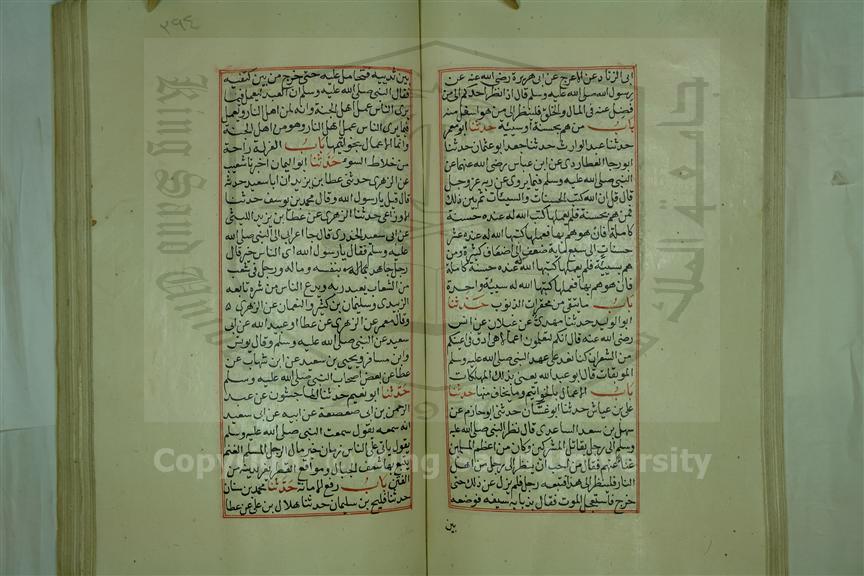 ابى الزناد عن الاعرج عن ابى هريرة رضى الله عنه عن
رسول الله صلى الله عليه وسلم قال اذا نظر احدكم الى من
فضل عليه فى المال والخلق فلينظر الى من هو اسفل منه
باب من هم بحسنة او سيئة حدثنا ابو معمر
حدثنا عبد الوارث حدثنا جعد ابو عثمان حدثنا
ابو رجا العطاردى عن ابن عباس رضى الله عنهما عن
النبى صلى الله عليه وسلم فيما يروى عن ربه عز وجل
قال قال ان الله كتب الحسنات والسيئات ثم بين ذلك
فمن هم بحسنة فلم يعملها كتبها الله له عنده حسنة
كاملة فان هو هم بها فعملها كتبها الله له عنده عشر
حسنات الى سبع مائة ضعف الى اضعاف كثيرة ومن
هم بسيئة فلم يعملها كتبها الله عنده حسنة كاملة
فان هو هم بها فعملها كتبها الله له سيئة واحدة
باب ما يتقى من محقرات الذنوب حدثنا
ابو الوليد حدثنا مهدى عن غيلان عن انس
رضى الله عنه قال انكم لتعملون اعمالا هى ادق فى اعينكم
من الشعر ان كنا نعد على عهد النبى صلى الله عليه وسلم
الموبقات قال ابو عبد الله يعنى بذلك المهلكات
باب الاعمال بالخواتيم وما يخاف منها حدثنا
على بن عياش حدثنا ابو غسان حدثنى ابو حازم عن
سهل بن سعد الساعدى قال نظر النبى صلى الله عليه
وسلم الى رجل يقاتل المشركين وكان من اعظم المسلمين
غناء عنهم فقال من احب ان ينظر الى رجل من اهل
النار فلينظر الى هذا فتبعه رجل فلم يزل على ذلك حتى
خرج فاستعجل الموت فقال بذبابة سيفه فوضعه
بين
٣٩٤
بين ثدييه فتحامل عليه حتى خرج من بين كتفيه
فقال النبى صلى الله عليه وسلم ان العبد ليعمل فيما
يرى الناس عمل اهل الجنة وانه لمن اهل النار ويعمل
فيما يرى الناس عمل اهل النار وهو من اهل الجنة
وانما الاعمال بخواتيمها باب العزلة راحة
من خلاط السوء حدثنا ابو اليمان اخبرنا شعيب
عن الزهرى حدثنى عطا بن يزيد ان ابا سعيد حدثه
قال قيل يا رسول الله وقال محمد بن يوسف حدثنا
الاوزاعى حدثنا الزهرى عن عطا بن يزيد الليثى
عن ابى سعيد الخدرى قال جا اعرابى الى النبى صلى الله
عليه وسلم فقال يا رسول الله اى الناس خير قال
رجل جاهد بنفسه وماله ورجل فى شعب
من الشعاب يعبد ربه ويدع الناس من شره تابعه
الزبيدى وسليمان بن كثير والنعمان عن الزهرى
وقال معمر عن الزهرى عن عطا او عبيد الله عن ابى
سعيد عن النبى صلى الله عليه وسلم وقال يونس
وابن مسافر ويحيى بن سعيد عن ابن شهاب عن
عطا عن بعض اصحاب النبى صلى الله عليه وسلم
حدثنا ابو نعيم حدثنا الماجشون عن عبد
الرحمن بن ابى صعصعة عن ابيه عن ابى سعيد
انه سمعه يقول سمعت النبى صلى الله عليه وسلم
يقول ياتى على الناس زمان خير مال الرجل المسلم الغنم
يتبع بها شعف الجبال ومواقع القطر يفر بدينه من
الفتن باب رفع الامانة حدثنا محمد بن سنان
حدثنا فليح بن سليمان حدثنا هلال بن على عن عطا